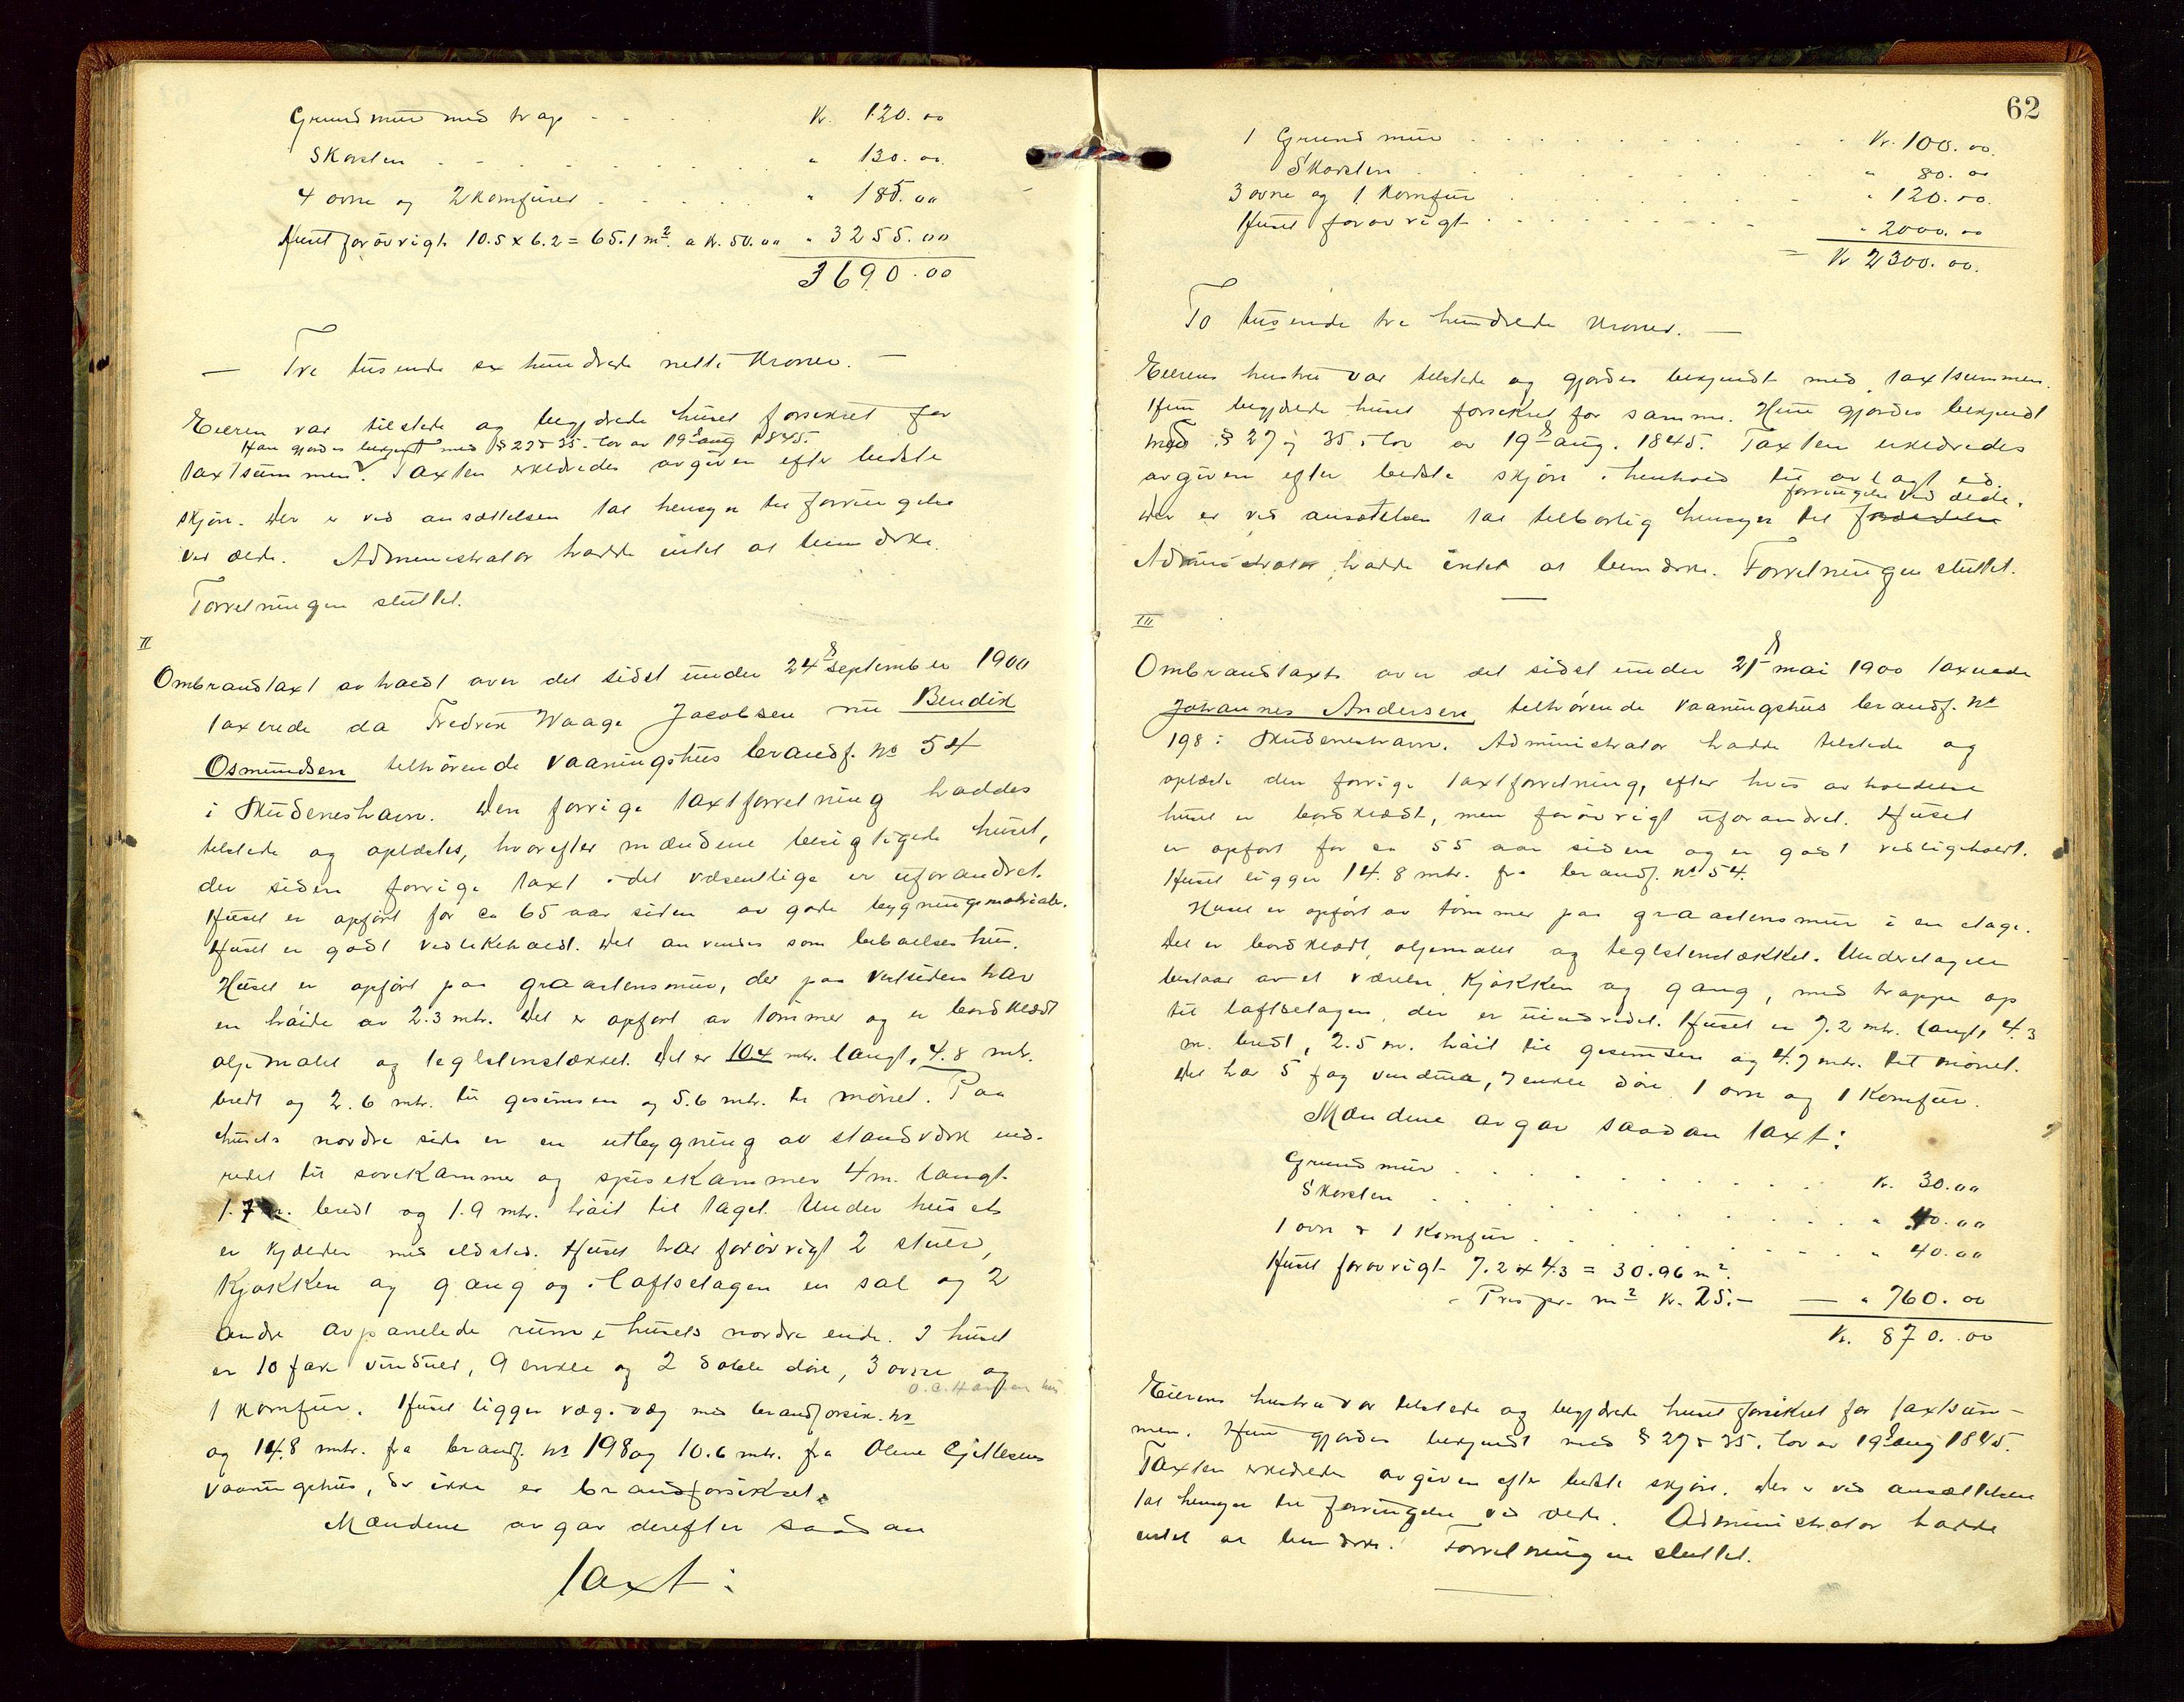 Grundmur med trap - - - - Kr. 120.00
Skorsten - - - - - - - " 130.00
4 ovne og 2 Komfurer - - - - " 185.00
Huset forøvrigt 10.5 x 6.2 = 65.1 m² a Kr. 50.00 " 3255.00
3690.00
— Tre tusende sex hundrede nitti Kroner. —
Eieren var tilstede og begjærede huset forsikret for
Han gjordes bekjent med § 27 & 35 i lov av 19d aug 1845.
taxtsummen. Taxten erklæredes avgiven efter bedste
skjøn. Der er ved ansættelsen tat hensyn til forringelse
ved ælde. Administrator hadde intet at bemærke.
Forretningen sluttet.
II
Ombrandtaxt avholdt over det sidst under 24d september 1900
taxerede da Fredrik Waage Jacobsen nu Bendik
Osmundsen tilhørende vaaningshus brandf. No 54
i Skudeneshavn. Den forrige taxtforretning haddes
tilstede og oplæstes, hvorefter mændene besigtigede huset,
der siden forrige taxt i det væsentlige er uforandret.
Huset er opført for ca 65 aar siden av gode bygningsmaterialer.
Huset er godt vedlikeholdt. Det anvendes som beboelseshus.
Huset er opført paa graastensmur, der paa vestsiden har
en høide av 2.3 mtr. Det er opført av tømmer og er bordklædt
oljemalet og teglstenstækket. Det er 10.4 mtr. langt, 4.8 mtr.
bredt og 2.6 mtr. til gesimsen og 5.6 mtr. til mønet. Paa
husets nordre side er en utbygning av standværk ind-
redet til sovekammer og spisekammer 4 m. langt
1.7 m. bredt og 1.9 mtr. høit til taget. Under huset
er kjælder med ildsted. Huset har forøvrigt 2 stuer,
Kjøkken og gang og i loftsetagen en sal og 2
andre avpanelede rum i husets nordre ende. I huset
er 10 fak vinduer, 9 enkle og 2 doble døre, 3 ovne og
O. C. Hansen hus
1 komfur. Huset ligger væg i væg med brandforsik. No
og 14.8 mtr. fra brandf. No 198 og 10.6 mtr. fra Olene Gjellesens
vaaningshus, der ikke er brandforsikret.
Mændene avgav derefter saadan
taxt:
62
1 Grundmur . . . . . . . . . Kr. 100.00
Skorsten . . . . . . . . . " 80.00
3 ovne og 1 Komfur . . . . . . . " 120.00
Huset forøvrigt . . . . . . . " 2000.00
= Kr 2300.00.
To tusende tre hundrede Kroner. —
Eierens hustru var tilstede og gjordes bekjendt med taxtsummen.
Hun begjærede huset forsikret for samme. Hun gjordes bekjendt
med § 27 og 35 i lov av 19d aug. 1845. Taxten erklæredes
avgiven efter bedste skjøn i henhold til avlagt ed.
forringelse ved ælde.
Der er ved ansættelsen tat tilbørlig hensyn til
Administrator hadde intet at bemærke. Forretningen sluttet.
III
Ombrandtaxt over det sidst under 21d mai 1900 taxerede
Johannes Andersen tilhørende vaaningshus brandf. No
198 i Skudeneshavn. Administrator hadde tilstede og
oplæste den forrige taxtforretning, efter hvis avholdelse
huset er bordklædt, men forøvrigt uforandret. Huset
er opført for ca 55 aar siden og er godt vedligeholdt.
Huset ligger 14.8 mtr. fra brandf. No 54.
Huset er opført av tømmer paa graastensmur i en etage.
Det er bordklædt, oljemalet og teglstenstækket. Underetagen
bestaar av et værelse, Kjøkken og gang, med trappe op
til loftsetagen, der er uindredet. Huset er 7.2 mtr. langt, 4.3
m. bredt, 2.5 m. høit til gesimsen og 4.7 mtr. til mønet.
Det har 5 fag vinduer, 7 enkle døre, 1 ovn og 1 Komfur.
Mændene avgav saadan taxt:
Grundmur . . . . . . . . Kr. 30.00
Skorsten . . . . . . . . " 40.00
1 ovn & 1 Komfur . . . . . . . " 40.00
Huset forøvrigt 7.2 x 4.3 = 30.96 m².
Pris pr. m² Kr. 25.- — " 760.00
Kr. 870.00
Eierens hustru var tilstede og begjærede huset forsikret for taxtsum-
men. Hun gjordes bekjendt med § 27 & 35 i lov av 19d aug 1845.
Taxten erklæredes avgiven efter bedste skjøn. Der er ved ansættelsen
tat hensyn til forringelse ved ælde. Administrator hadde
intet at bemærke. Forretningen sluttet.